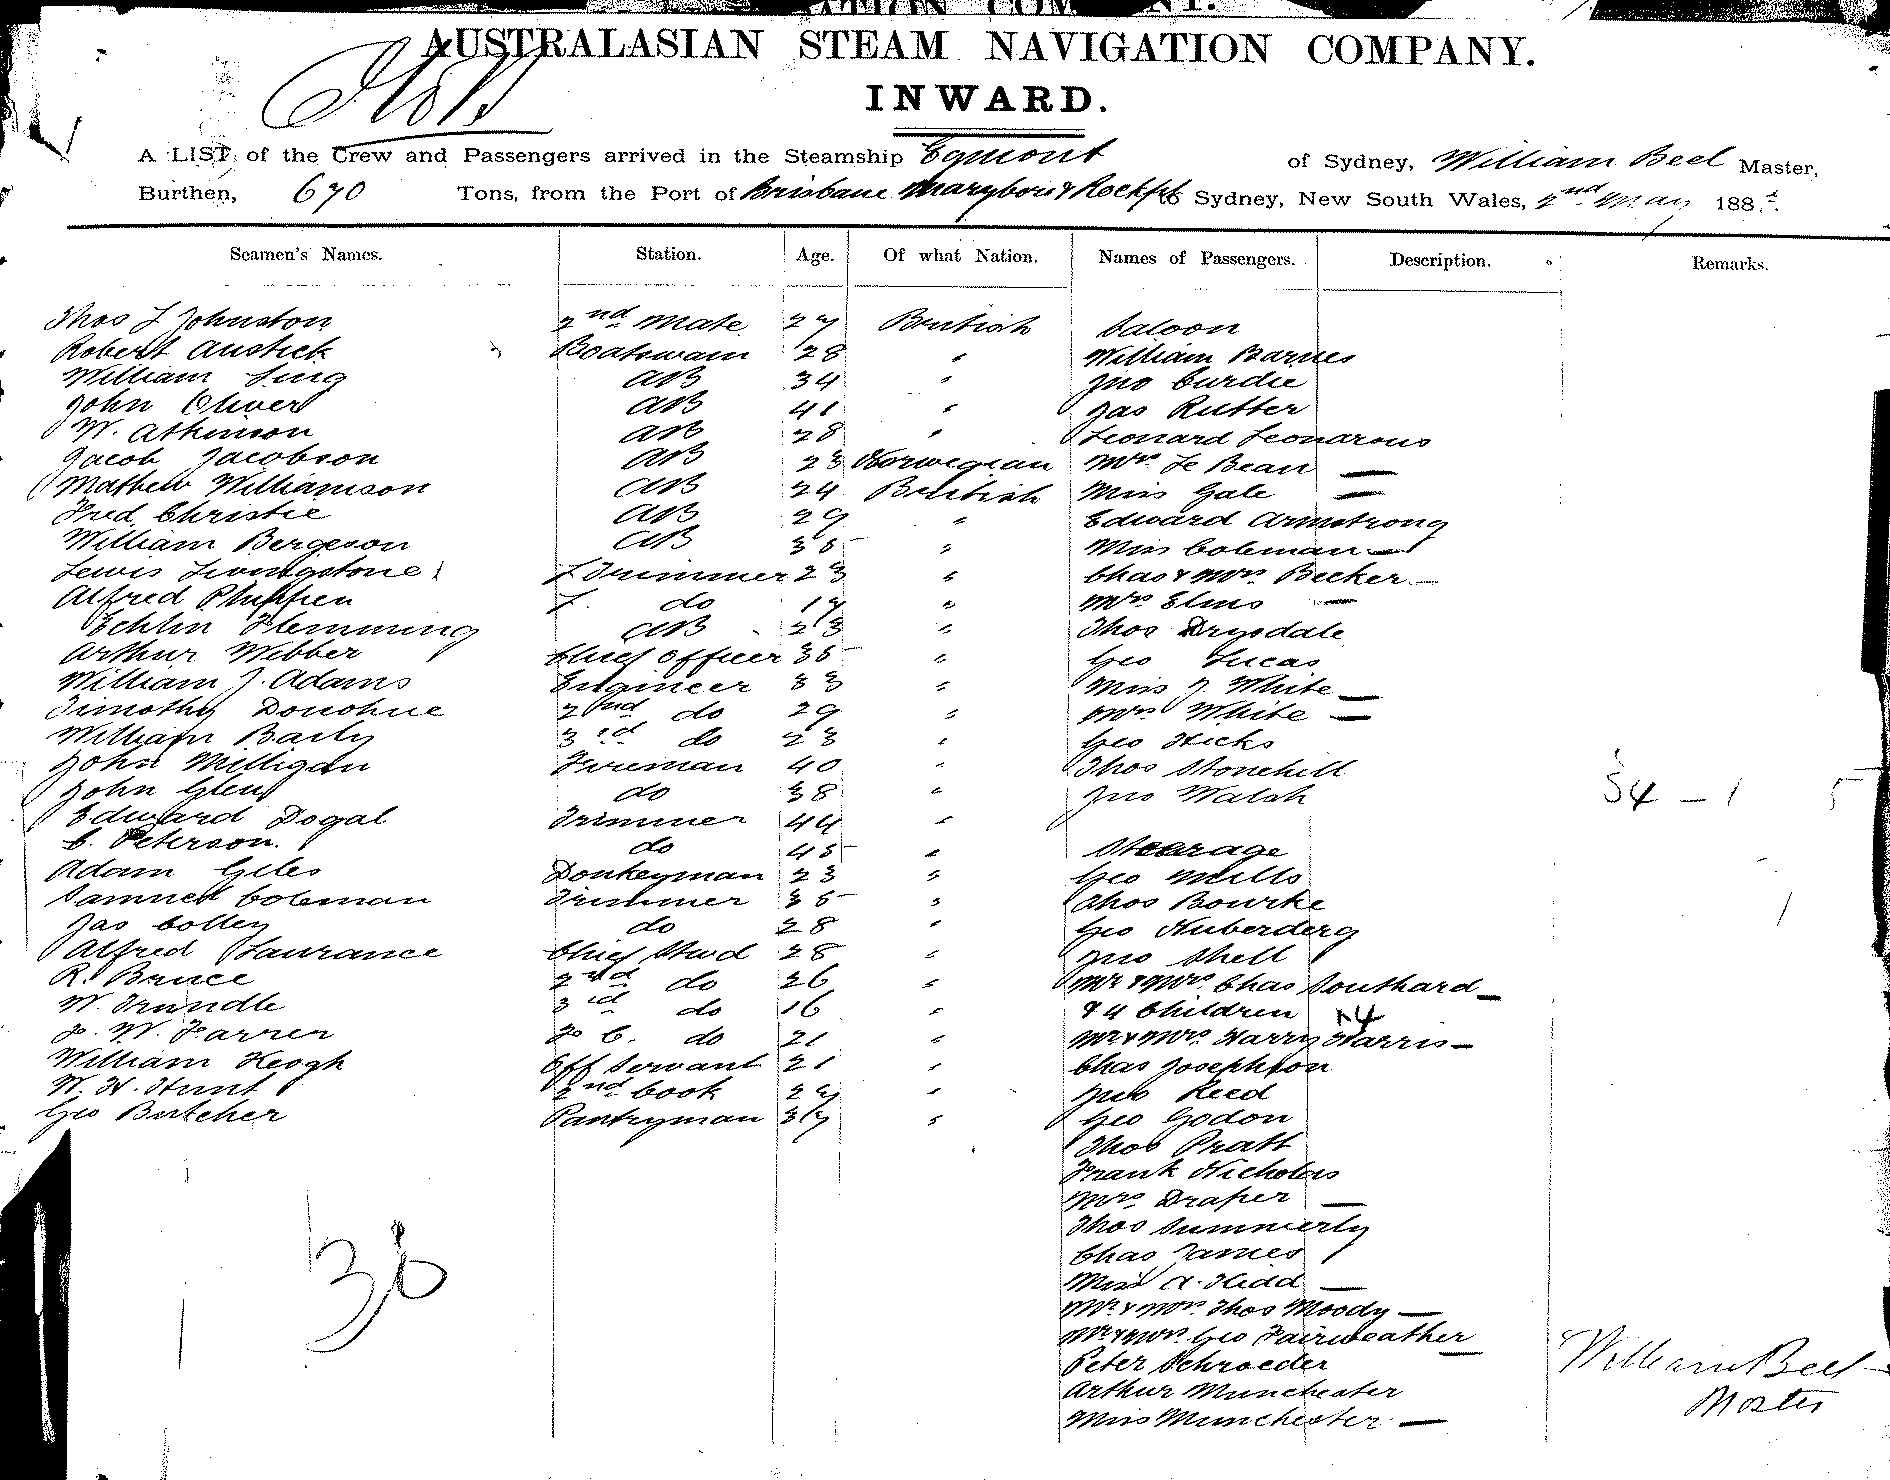 AUSTRALASIAN STEAM NAVIGATION COMPANY.
INWARD.
A LIST of the Crew and Passengers arrived in the Steamship Egmont of Sydney, William Beel Master,
Burthen, 670 Tons, from the Port of Brisbane Maryboro & Rockptn to Sydney, New South Wales, 2nd May 188
Seamen's Names. Station. Age. Of what Nation. Names of Passengers. Description. Remarks.
Thos L Johnston 2nd Mate 27 British Saloon
Robert Austick Boatswain 28 " William Barnes
William Ling AB 34 " Jno Curdie
John Oliver AB 41 " Jas Rutter
W. Atkinson AB 28 " Leonard Leonarous
Jacob Jacobson AB 23 Norwegian Mrs Le Bean —
Mathew Williamson AB 24 British Miss Gale —
Fred Christie AB 29 " Edward Armstrong
William Bergeson AB 35 " Miss Coleman —
Lewis Livingstone F Trimmer 23 " Chas & Mrs Becker —
Alfred F. do 17 " Mrs Elms —
Echlin Flemming AB 23 " Thos Drysdale
Arthur Webber Chief Officer 35 " Geo Lucas
William J. Adams Engineer 33 " Miss J. White —
Timothy Donohue 2nd do 29 " Mrs White —
William Baily 3rd do 23 " Geo Hicks
John Milligan Fireman 40 " Thos Stonehill
John Glen do 38 " Jno Walsh 54 - 1 5
Edward Dogal Trimmer 44 "
C. Peterson. do 45 " Steerage
Adam Giles Donkeyman 23 " Geo Mills
Samuel Coleman Trimmer 35 " Thos Bourke
Jas Colley do 28 " Geo Huberderg
Alfred Laurance Chief Stwd 28 " Jno Shell
R. Bruce 2nd do 26 " Mr & Mrs Chas Southard —
W. Trundle 3rd do 16 " & 4 Children 4
F. W. Farrer F. C. do 21 " Mr & Mrs Harry Harris —
William Keogh Off Servant 21 " Chas Josephson
W. H. Hunt 2nd Cook 27 " Jno Reed
Geo Butcher Pantryman 37 " Geo Godon
Thos Pratt
Frank Nicholas
Mrs Draper —
Thos Summerly
Chas James
Miss A. Hidd —
Mr & Mrs Thos Moody —
Mr & Mrs Geo Fairweather —
Peter Schroeder
Arthur Munchester
Miss Munchester —
30
William Beel
Master